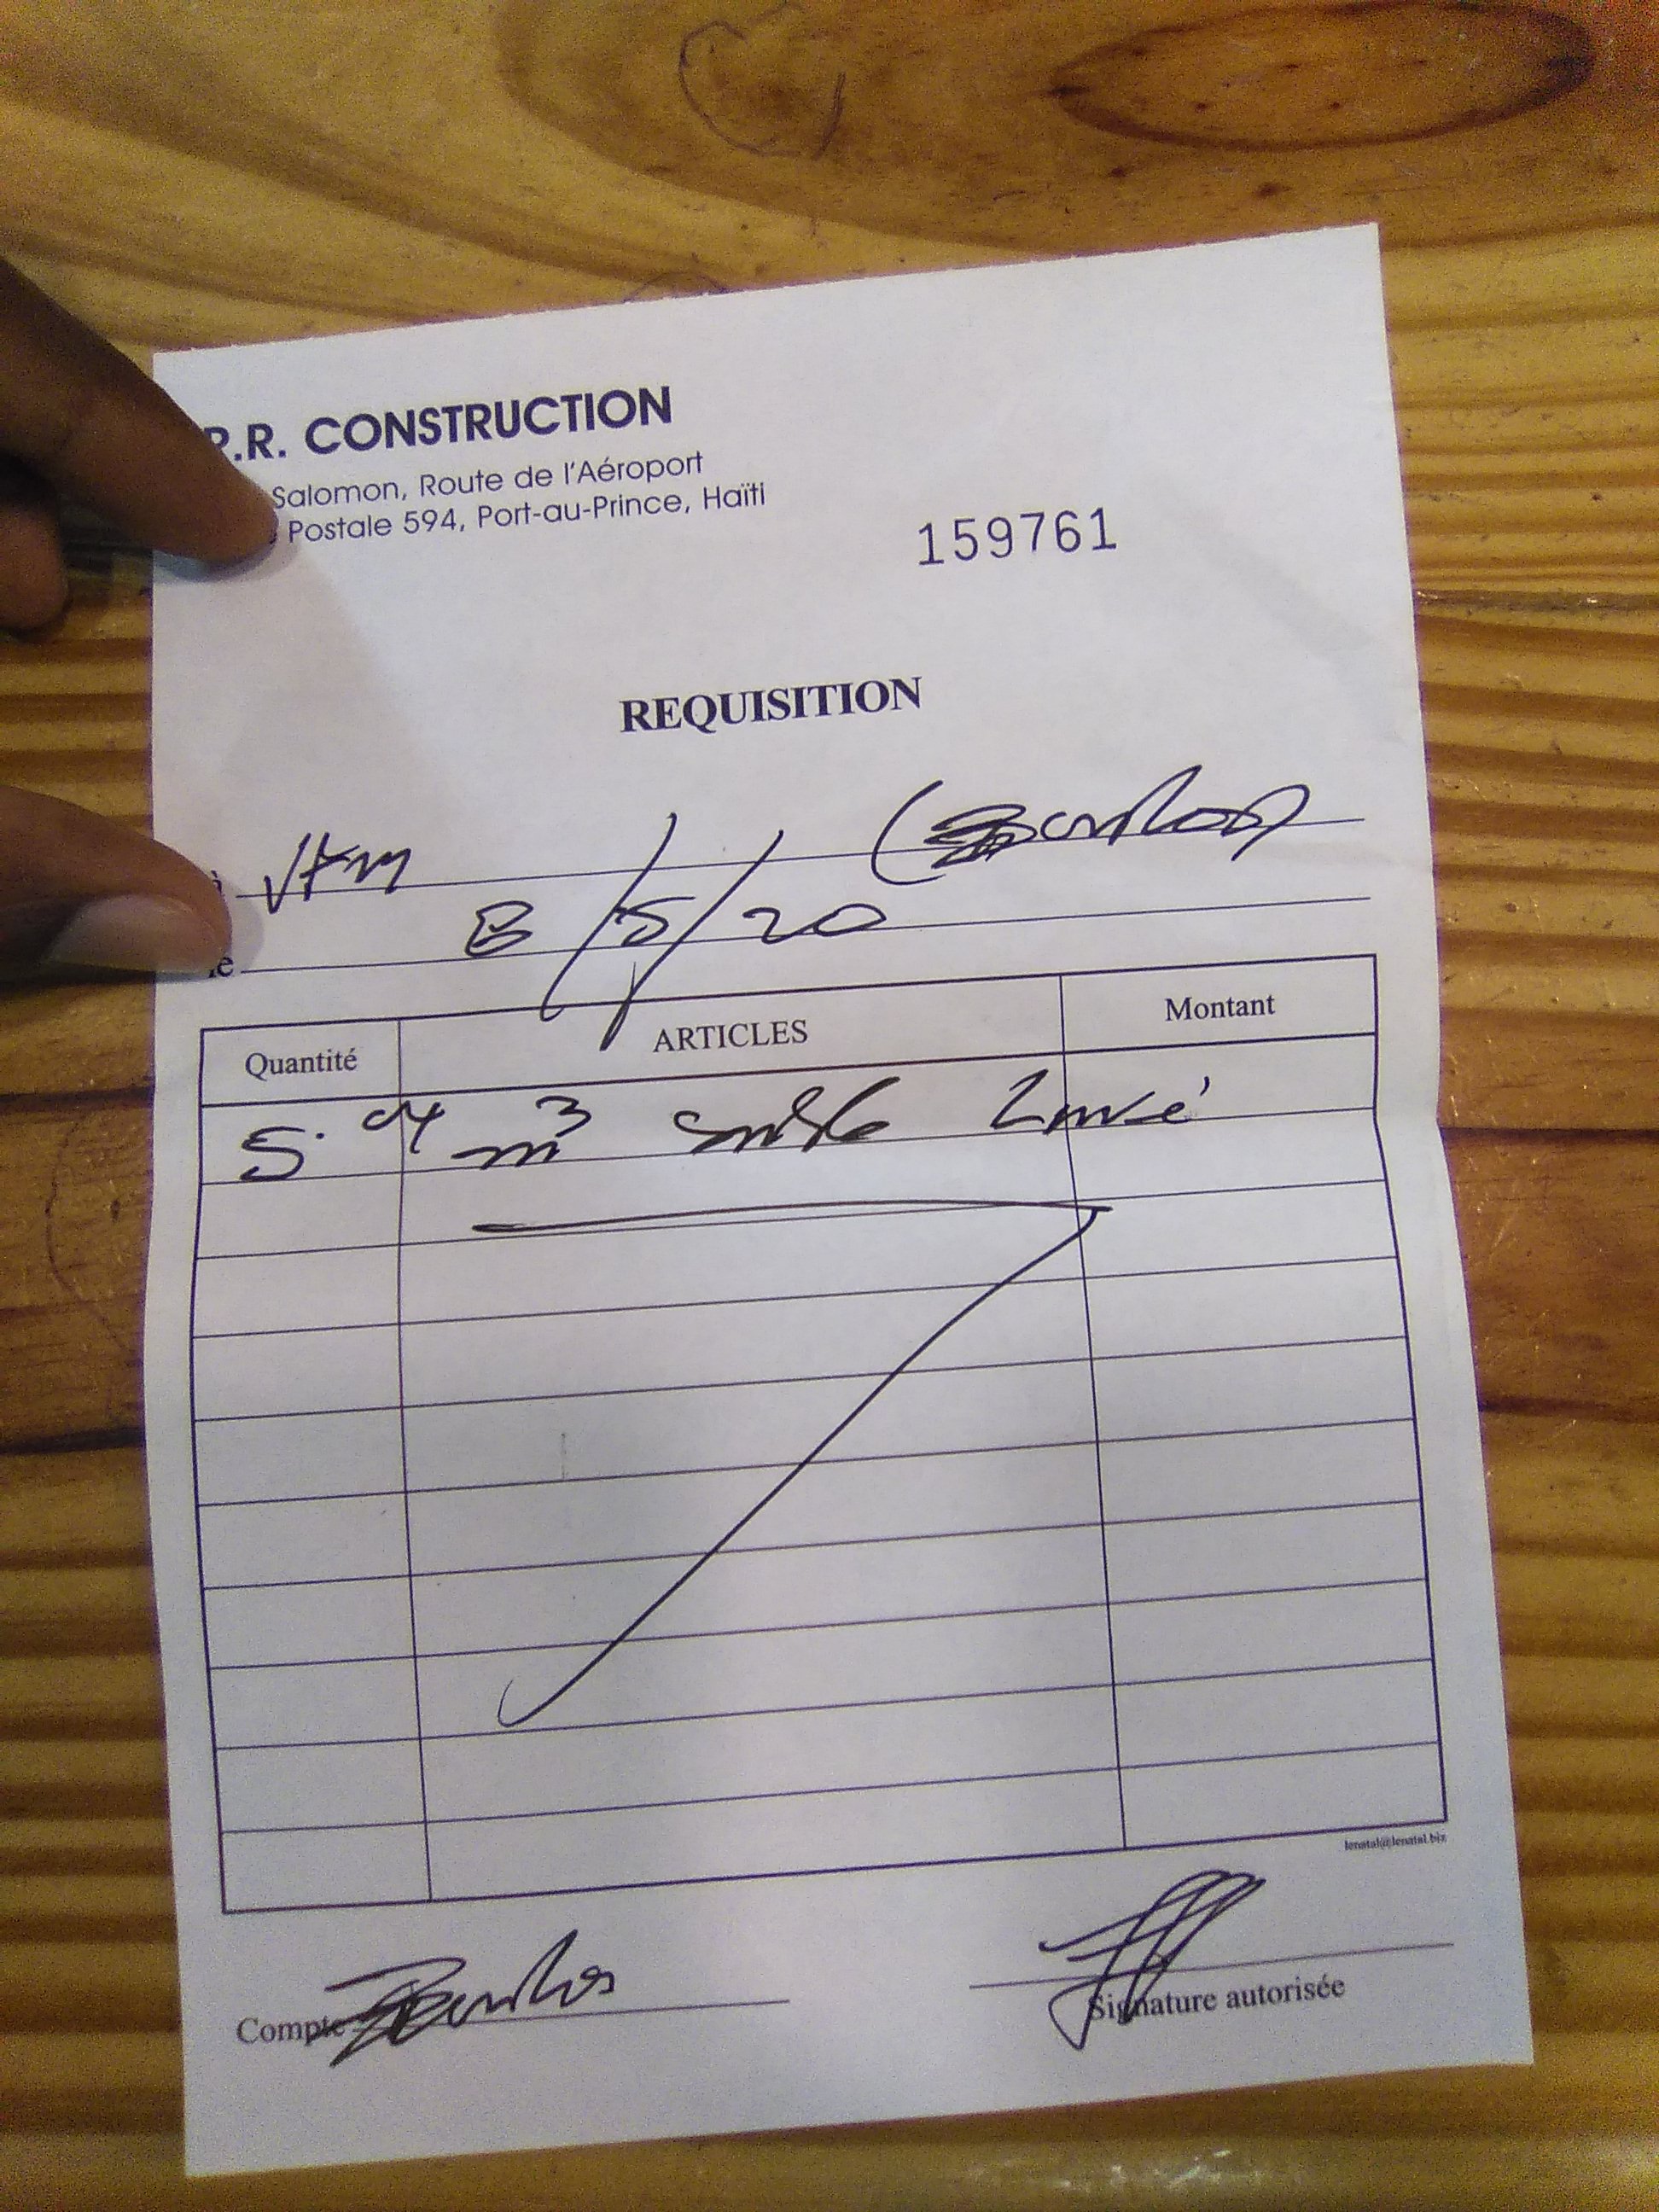 .R. CONSTRUCTION
Salomon, Route de l'Aéroport
Postale 594, Port-au-Prince, Haïti
159761
REQUISITION
à
le /5/20
Quantité ARTICLES Montant
5 m³ sable Lavé
lenatal@lenatal.biz
Compte
Signature autorisée